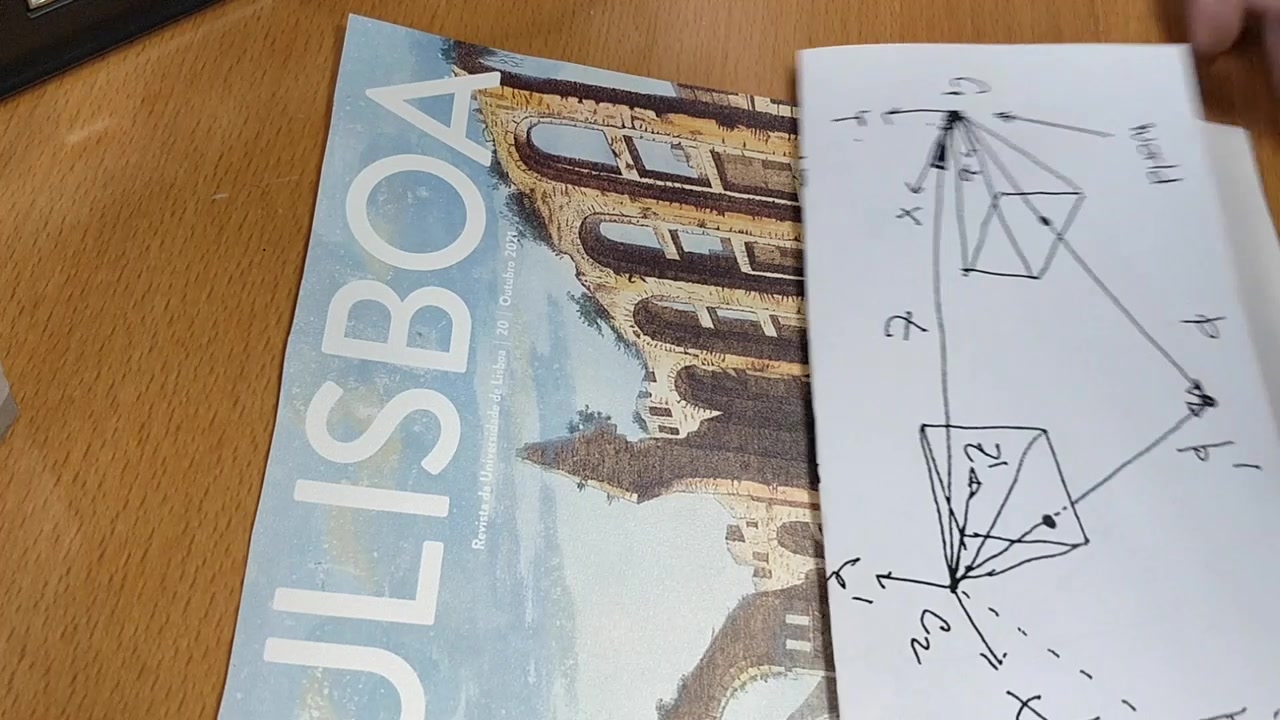 ULISBOA
Revista da Universidade de Lisboa | 20 | Outubro 2021
World
C1
z
x
t
P
P'
z'
y'
C2
x